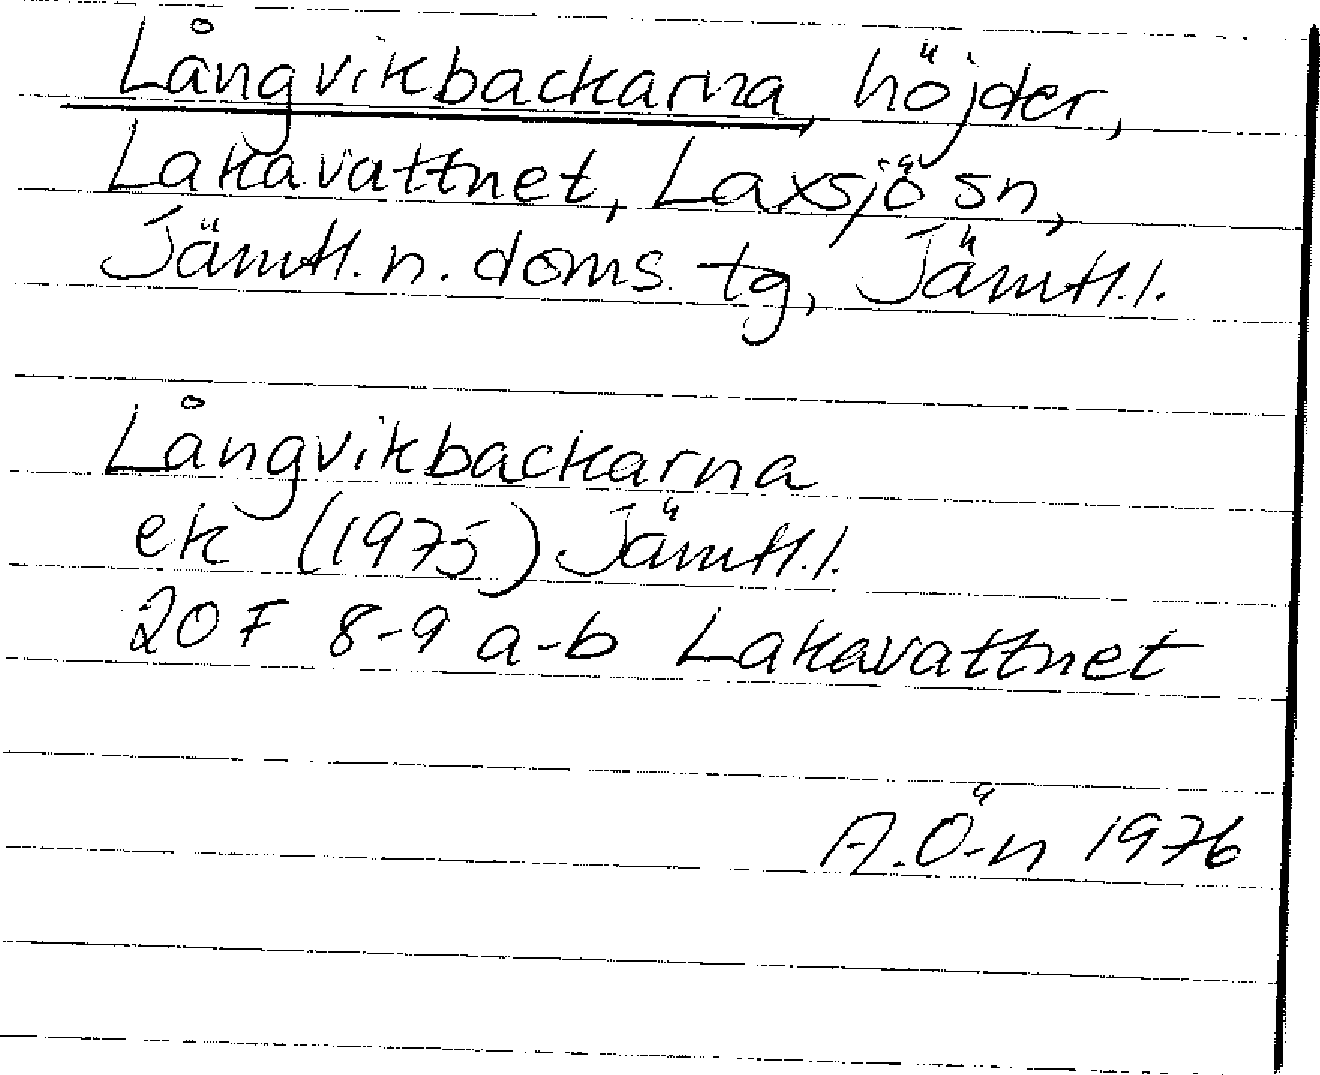 Långvikbackarna, höjder,
Lakavattnet, Laxsjö sn,
Jämtl. n. doms. tg, Jämtl. l.
Långvikbackarna
ek (1975) Jämtl. l.
20 F 8-9 a-b Lakavattnet
A. Ö-n 1976